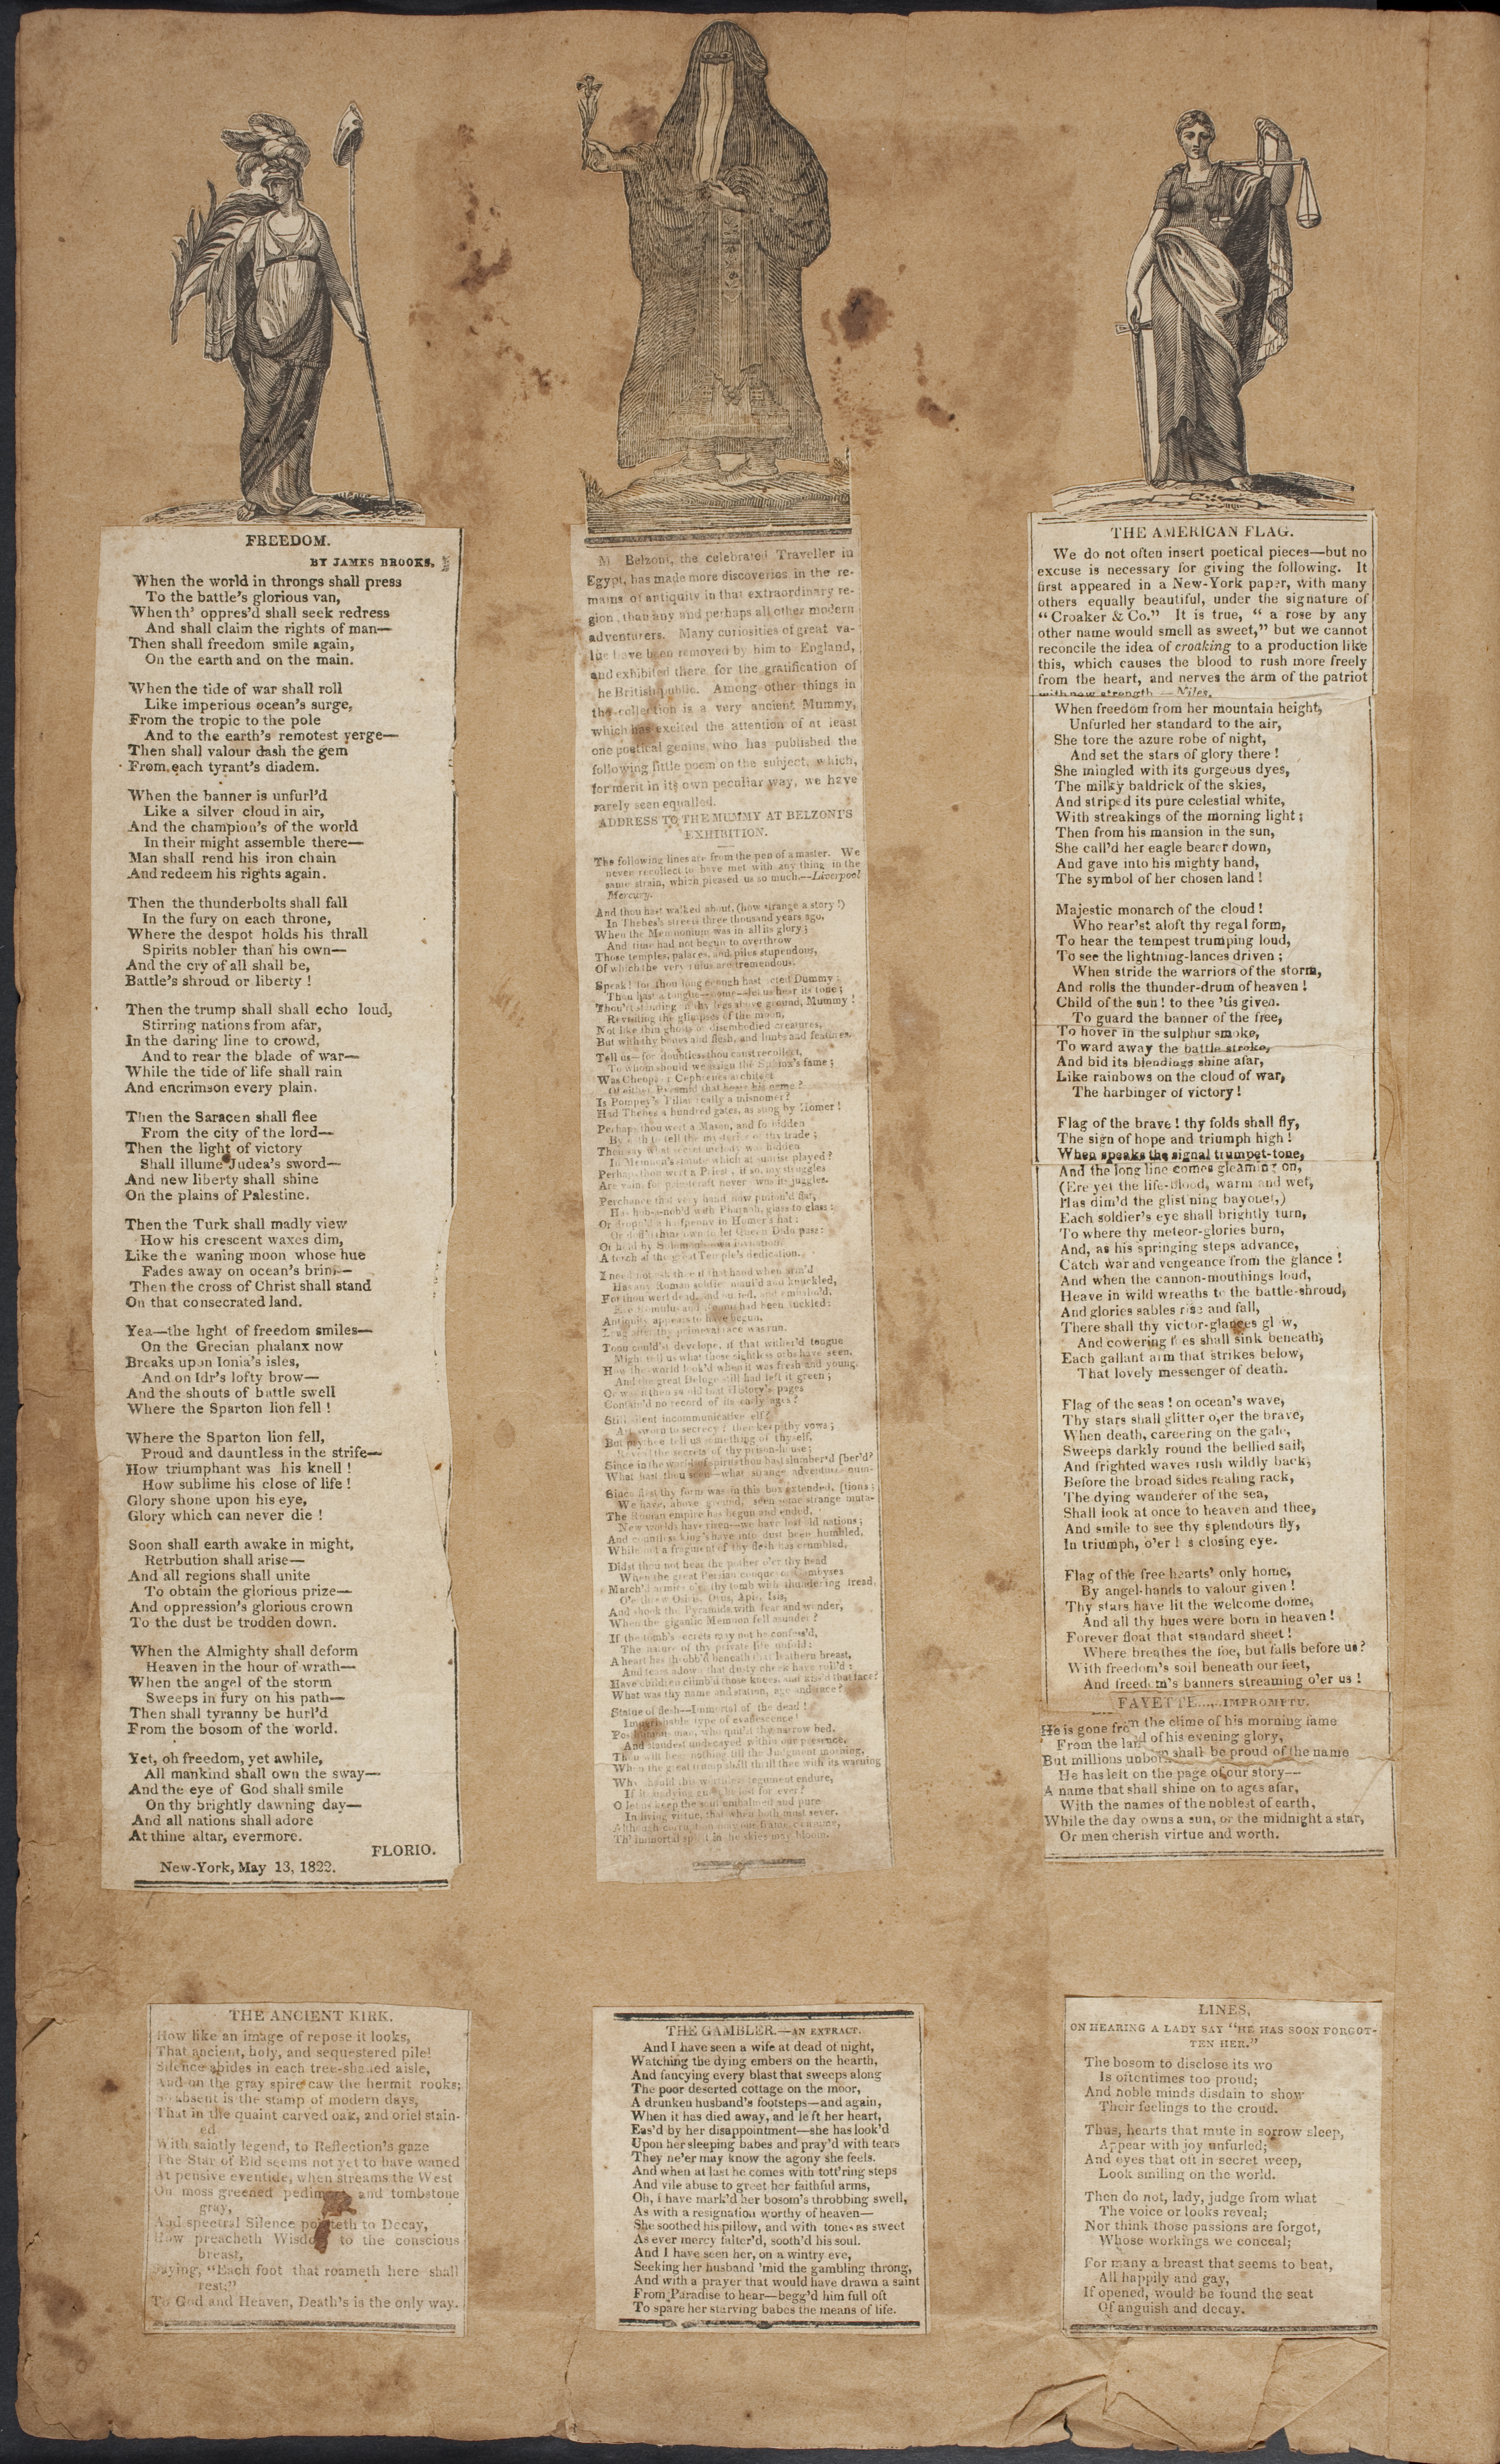 FREEDOM.
BY JAMES BROOKS.
When the world in throngs shall press
To the battle's glorious van,
When th' oppres'd shall seek redress
And shall claim the rights of man—
Then shall freedom smile again,
On the earth and on the main.
When the tide of war shall roll
Like imperious ocean's surge,
From the tropic to the pole
And to the earth's remotest verge—
Then shall valour dash the gem
From each tyrant's diadem.
When the banner is unfurl'd
Like a silver cloud in air,
And the champion's of the world
In their might assemble there—
Man shall rend his iron chain
And redeem his rights again.
Then the thunderbolts shall fall
In the fury on each throne,
Where the despot holds his thrall
Spirits nobler than his own—
And the cry of all shall be,
Battle's shroud or liberty !
Then the trump shall shall echo loud,
Stirring nations from afar,
In the daring line to crowd,
And to rear the blade of war—
While the tide of life shall rain
And encrimson every plain.
Then the Saracen shall flee
From the city of the lord—
Then the light of victory
Shall illume Judea's sword—
And new liberty shall shine
On the plains of Palestine.
Then the Turk shall madly view
How his crescent waxes dim,
Like the waning moon whose hue
Fades away on ocean's brim—
Then the cross of Christ shall stand
On that consecrated land.
Yea—the light of freedom smiles—
On the Grecian phalanx now
Breaks upon Ionia's isles,
And on Idr's lofty brow—
And the shouts of battle swell
Where the Sparton lion fell !
Where the Sparton lion fell,
Proud and dauntless in the strife—
How triumphant was his knell !
How sublime his close of life !
Glory shone upon his eye,
Glory which can never die !
Soon shall earth awake in might,
Retrbution shall arise—
And all regions shall unite
To obtain the glorious prize—
And oppression's glorious crown
To the dust be trodden down.
When the Almighty shall deform
Heaven in the hour of wrath—
When the angel of the storm
Sweeps in fury on his path—
Then shall tyranny be hurl'd
From the bosom of the world.
Yet, oh freedom, yet awhile,
All mankind shall own the sway—
And the eye of God shall smile
On thy brightly dawning day—
And all nations shall adore
At thine altar, evermore.
FLORIO.
New-York, May 13, 1822.
M. Belzoni, the celebrated Traveller in
Egypt, has made more discoveries in the re-
mains of antiquity in that extraordinary re-
gion, than any and perhaps all other modern
adventurers. Many curiosities of great va-
lue have been removed by him to England,
and exhibited there for the gratification of
he British public. Among other things in
the collection is a very ancient Mummy,
which has excited the attention of at least
one poetical genius who has published the
following little poem on the subject, which,
for merit in its own peculiar way, we have
rarely seen equalled.
ADDRESS TO THE MUMMY AT BELZONI'S
EXHIBITION.
The following lines are from the pen of a master. We
never recollect to have met with any thing in the
same strain, which pleased us so much.—Liverpool
Mercury.
And thou hast walked about, (how strange a story !)
In Thebes's streets three thousand years ago,
When the Memnonium was in all its glory ;
And time had not begun to overthrow
Those temples, palaces, and piles stupendous,
Of which the very ruins are tremendous.
Speak! for thou long enough hast acted Dummy ;
Thou hast a tongue—come—let us hear its tone ;
Thou'rt standing on thy legs above ground, Mummy !
Revisiting the glimpses of the moon,
Not like thin ghosts or disembodied creatures,
But with thy bones and flesh, and limbs and features.
Tell us—for doubtless thou canst recollect,
To whom should we assign the Sphinx's fame ;
Was Cheops or Cephrenes architect
Of either Pyramid that bears his name ?
Is Pompey's Pillar really a misnomer ?
Had Thebes a hundred gates, as sung by Homer !
Perhaps thou wert a Mason, and forbidden
By oath to tell the mysteries of thy trade ;
Then say what secret melody was hidden
In Memnon's statue which at sunrise played ?
Perhaps thou wert a Priest, if so, my struggles
Are vain, for priestcraft never owns its juggles.
Perchance that very hand now pinion'd flat,
Has hob-a-nob'd with Pharaoh, glass to glass ;
Or dropp'd a halfpenny in Homer's hat ;
Or doff'd thine own to let Queen Dido pass ;
Or held by Solomon's own invitation,
A torch at the great Temple's dedication.
I need not ask thee if that hand when arm'd
Has any Roman soldier maul'd and knuckled,
For thou wert dead, and buried, and embalm'd,
Ere Romulus and Remus had been suckled :
Antiquity appears to have begun,
Long after thy primeval race was run.
Thou could'st develope, if that wither'd tongue
Might tell us what those sightless orbs have seen,
How the world look'd when it was fresh and young,
And the great Deluge still had left it green ;
Or was it then so old that History's pages
Contain'd no record of its early ages ?
Still silent incommunicative elf ?
Art sworn to secrecy ? then keep thy vows ;
But prythee tell us something of thyself,
Reveal the secrets of thy prison-house ;
Since in the world of spirits thou hast slumber'd [ber'd?
What hast thou seen—what strange adventures num-
Since first thy form was in this box extended, [tions ;
We have, above ground, seen some strange muta-
The Roman empire has begun and ended,
New worlds have risen—we have lost old nations ;
And countless kings have into dust been humbled,
While not a fragment of thy flesh has crumbled.
Didst thou not hear the pother o'er thy head
When the great Persian conqueror Cambyses
March'd armies o'er thy tomb with thundering tread,
O'erthrew Osiris, Orus, Apis, Isis,
And shook the Pyramids with fear and wonder,
When the gigantic Memnon fell asunder ?
If the tomb's secrets may not be confess'd,
The nature of thy private life unfold :
A heart has throbb'd beneath that leathern breast,
And tears adown that dusty cheek have roll'd :
Have children climb'd those knees, and kiss'd that face?
What was thy name and station, age and race ?
Statue of flesh—Immortal of the dead !
Imperishable type of evanescence !
Posthumous man, who quitt'st thy narrow bed,
And standest undecayed within our presence,
Thou wilt hear nothing till the Judgment morning,
When the great trump shall thrill thee with its warning
Why should this worthless tegument endure,
If its undying guest be lost for ever ?
O let us keep the soul embalmed and pure
In living virtue, that when both must sever,
Although corruption may our frame consume,
Th' immortal spirit in the skies may bloom.
THE AMERICAN FLAG.
We do not often insert poetical pieces—but no
excuse is necessary for giving the following. It
first appeared in a New-York paper, with many
others equally beautiful, under the signature of
"Croaker & Co." It is true, " a rose by any
other name would smell as sweet," but we cannot
reconcile the idea of croaking to a production like
this, which causes the blood to rush more freely
from the heart, and nerves the arm of the patriot
with new strength — Niles.
When freedom from her mountain height,
Unfurled her standard to the air,
She tore the azure robe of night,
And set the stars of glory there !
She mingled with its gorgeous dyes,
The milky baldrick of the skies,
And striped its pure celestial white,
With streakings of the morning light ;
Then from his mansion in the sun,
She call'd her eagle bearer down,
And gave into his mighty hand,
The symbol of her chosen land !
Majestic monarch of the cloud !
Who rear'st aloft thy regal form,
To hear the tempest trumping loud,
To see the lightning-lances driven ;
When stride the warriors of the storm,
And rolls the thunder-drum of heaven !
Child of the sun ! to thee 'tis given.
To guard the banner of the free,
To hover in the sulphur smoke,
To ward away the battle stroke,
And bid its blendings shine afar,
Like rainbows on the cloud of war,
The harbinger of victory !
Flag of the brave ! thy folds shall fly,
The sign of hope and triumph high !
When speaks the signal trumpet-tone,
And the long line comes gleaming on,
(Ere yet the life-blood, warm and wet,
Has dim'd the glist'ning bayonet,)
Each soldier's eye shall brightly turn,
To where thy meteor-glories burn,
And, as his springing steps advance,
Catch war and vengeance from the glance !
And when the cannon-mouthings loud,
Heave in wild wreaths to the battle-shroud,
And glories sables rise and fall,
There shall thy victor-glances glow,
And cowering foes shall sink beneath,
Each gallant arm that strikes below,
That lovely messenger of death.
Flag of the seas ! on ocean's wave,
Thy stars shall glitter o,er the brave,
When death, careering on the gale,
Sweeps darkly round the bellied sail,
And frighted waves rush wildly back,
Before the broad sides realing rack,
The dying wanderer of the sea,
Shall look at once to heaven and thee,
And smile to see thy splendours fly,
In triumph, o'er his closing eye.
Flag of the free hearts' only home,
By angel-hands to valour given !
Thy stars have lit the welcome dome,
And all thy hues were born in heaven !
Forever float that standard sheet !
Where breathes the foe, but falls before us ?
With freedom's soil beneath our feet,
And freedom's banners streaming o'er us !
FAYETTE.....IMPROMPTU.
He is gone from the clime of his morning fame
From the land of his evening glory,
But millions unborn shall be proud of the name
He has left on the page of our story—
A name that shall shine on to ages afar,
With the names of the noblest of earth,
While the day owns a sun, or the midnight a star,
Or men cherish virtue and worth.
THE ANCIENT KIRK.
How like an image of repose it looks,
That ancient, holy, and sequestered pile!
Silence abides in each tree-shaded aisle,
And on the gray spire caw the hermit rooks;
So absent is the stamp of modern days,
That in the quaint carved oak, and oriel stain-
ed
With saintly legend, to Reflection's gaze
The Star of Eld seems not yet to have waned
At pensive eventide, when streams the West
On moss greened pediment, and tombstone
gray,
And spectral Silence pointeth to Decay,
How preacheth Wisdom to the conscious
breast,
Saying, "Each foot that roameth here shall
rest;"
To God and Heaven, Death's is the only way.
THE GAMBLER.—AN EXTRACT.
And I have seen a wife at dead of night,
Watching the dying embers on the hearth,
And fancying every blast that sweeps along
The poor deserted cottage on the moor,
A drunken husband's footsteps—and again,
When it has died away, and left her heart,
Eas'd by her disappointment—she has look'd
Upon her sleeping babes and pray'd with tears
They ne'er may know the agony she feels.
And when at last he comes with tott'ring steps
And vile abuse to greet her faithful arms,
Oh, I have mark'd her bosom's throbbing swell,
As with a resignation worthy of heaven—
She soothed his pillow, and with tones as sweet
As ever mercy falter'd, sooth'd his soul.
And I have seen her, on a wintry eve,
Seeking her husband 'mid the gambling throng,
And with a prayer that would have drawn a saint
From Paradise to hear—begg'd him full oft
To spare her starving babes the means of life.
LINES,
ON HEARING A LADY SAY "HE HAS SOON FORGOT-
TEN HER."
The bosom to disclose its wo
Is oftentimes too proud;
And noble minds disdain to show
Their feelings to the croud.
Thus, hearts that mute in sorrow sleep,
Appear with joy unfurled;
And eyes that oft in secret weep,
Look smiling on the world.
Then do not, lady, judge from what
The voice or looks reveal;
Nor think those passions are forgot,
Whose workings we conceal;
For many a breast that seems to beat,
All happily and gay,
If opened, would be found the seat
Of anguish and decay.